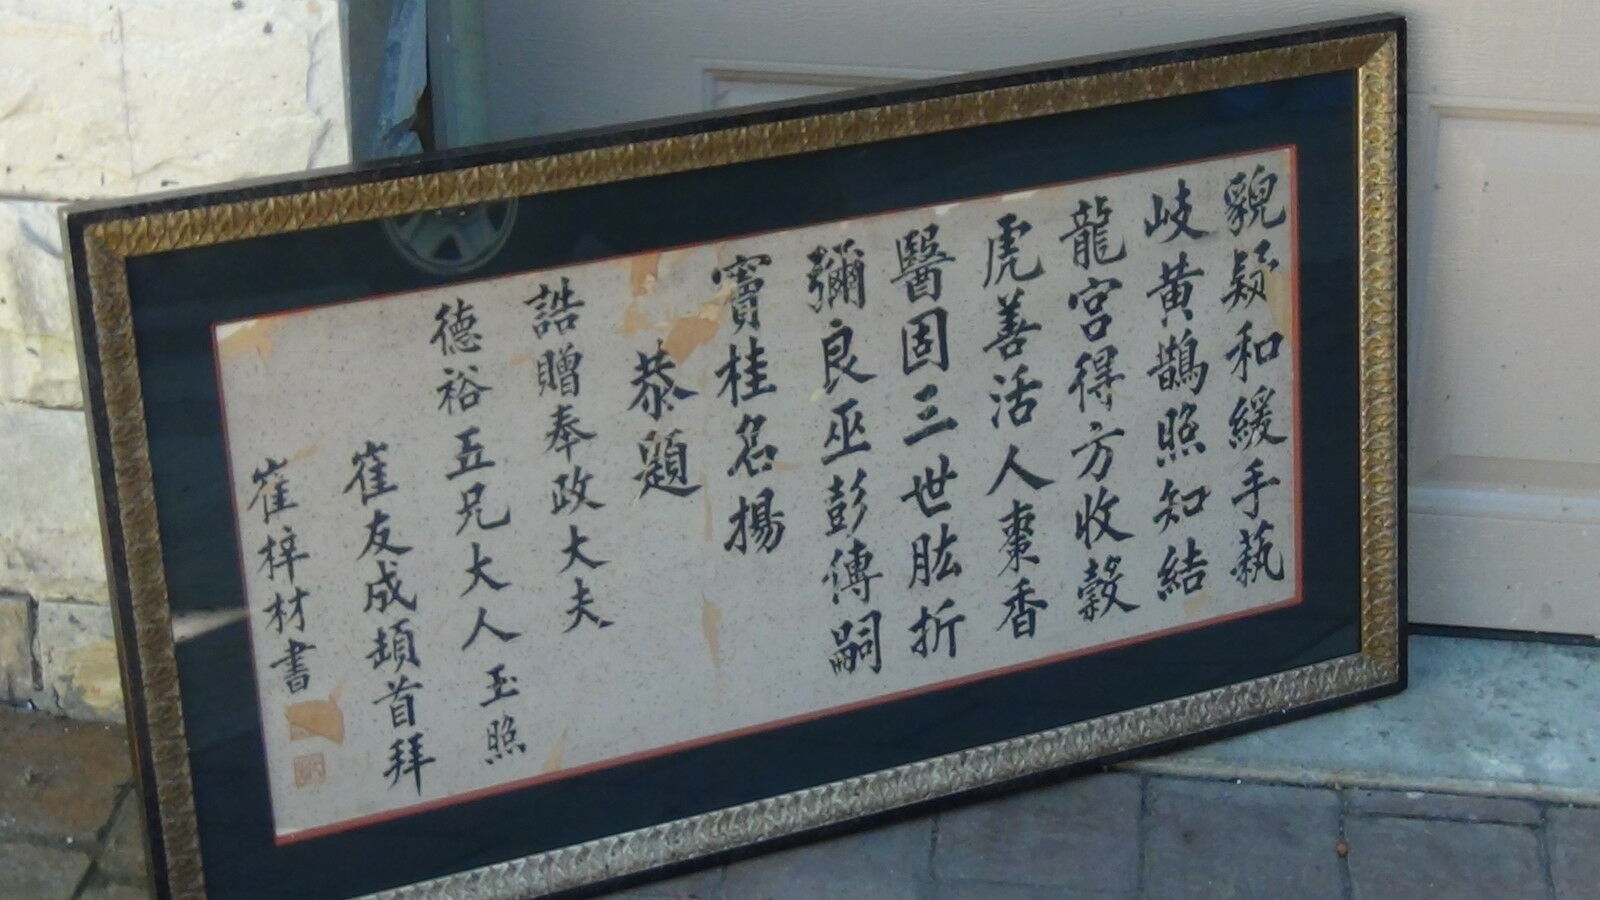 貌疑和緩手藝
岐黄鵲照知結
龍宮得方收穀
虎善活人棗香
醫固三世肱折
彌良巫彭傳嗣
竇桂名揚
恭題
誥贈奉政大夫
德裕五兄大人玉照
崔友成頓首拜
崔梓材書